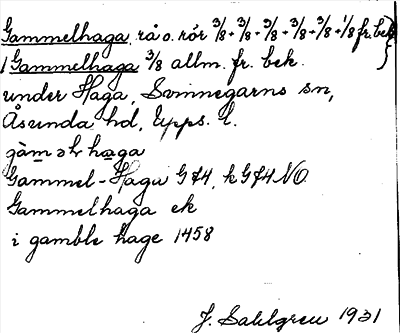 Gammelhaga, rå o. rör 3/8+3/8+3/8+3/8+3/8+1/8 fr. bek.
1 Gammelhaga 3/8 allm. fr. bek.
under Haga, Svinnegarns sn,
Åsunda hd, Upps. l.
gàməl haga
Gammel-Haga G74, k G74 NO
Gammelhaga ek
i gamble hage 1458
J. Sahlgren 1931